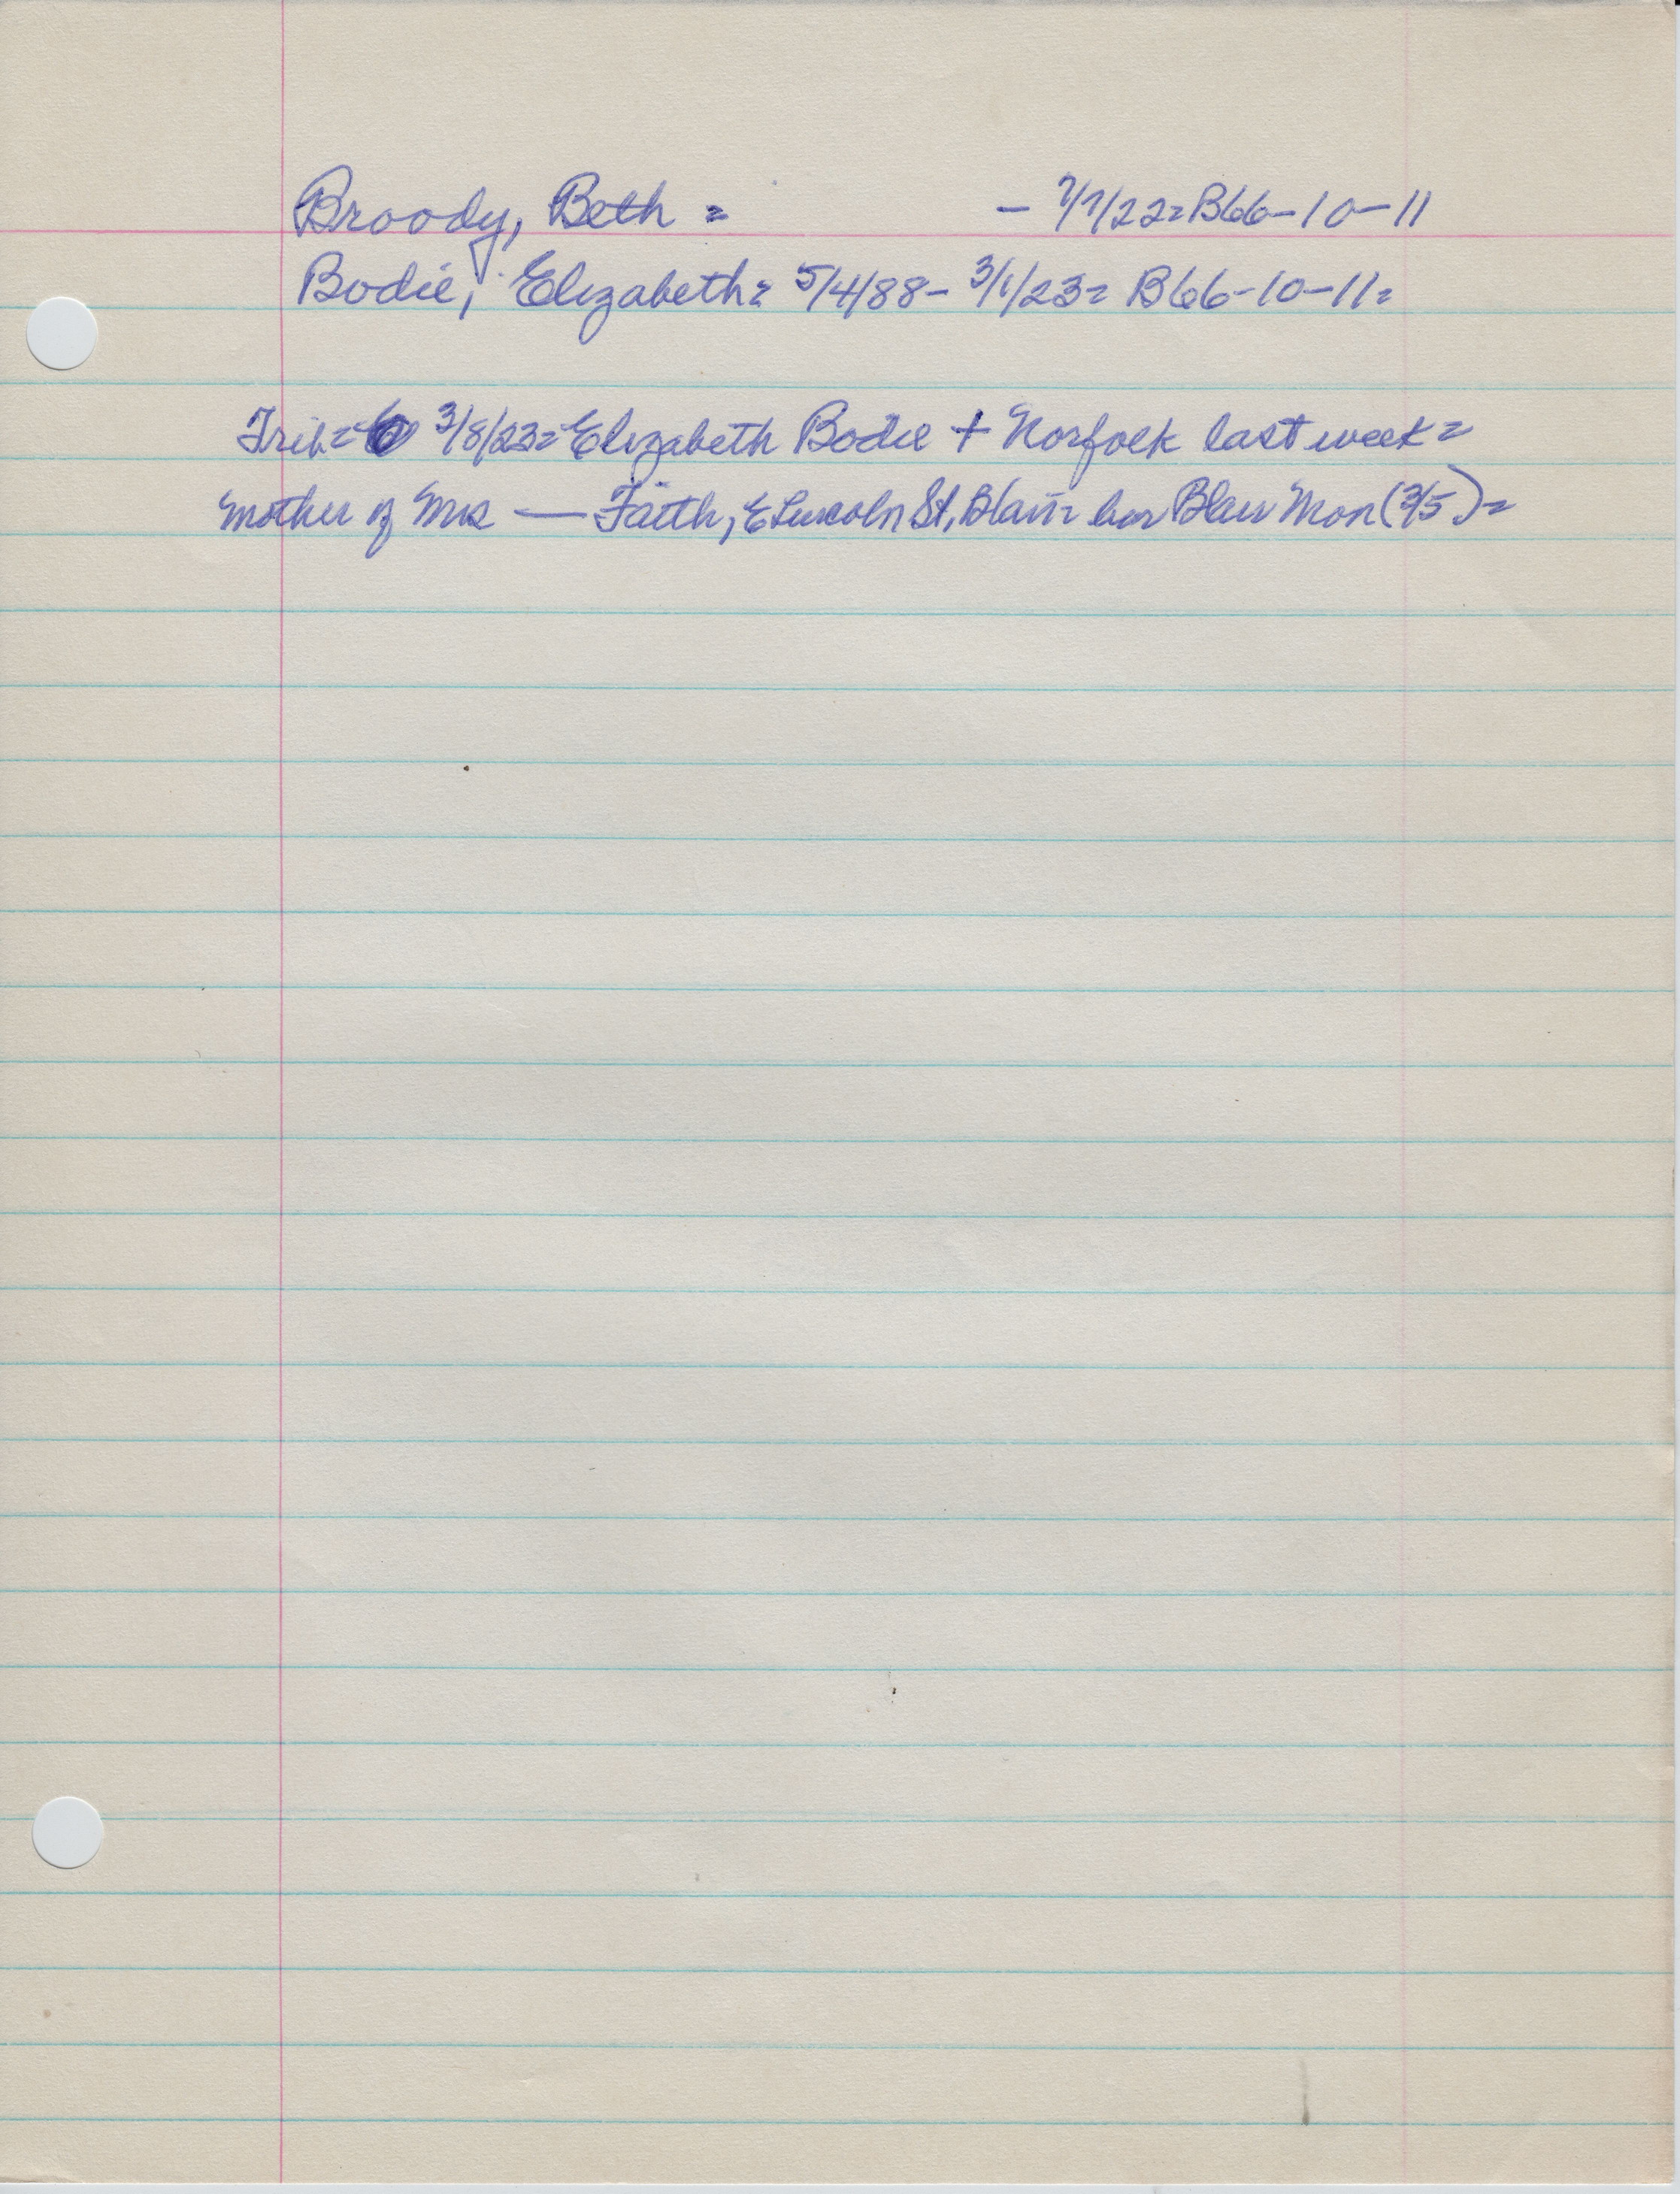 Broody, Beth = - 7/7/22=B66-10-11
Bodie, Elizabeth= 5/4/88- 3/1/23= B66-10-11=
Trib= 3/8/23= Elizabeth Bodie + Norfolk last week=
mother of Mrs — Faith, E Lincoln St, Blair= bur Blair Mon (3/5)=